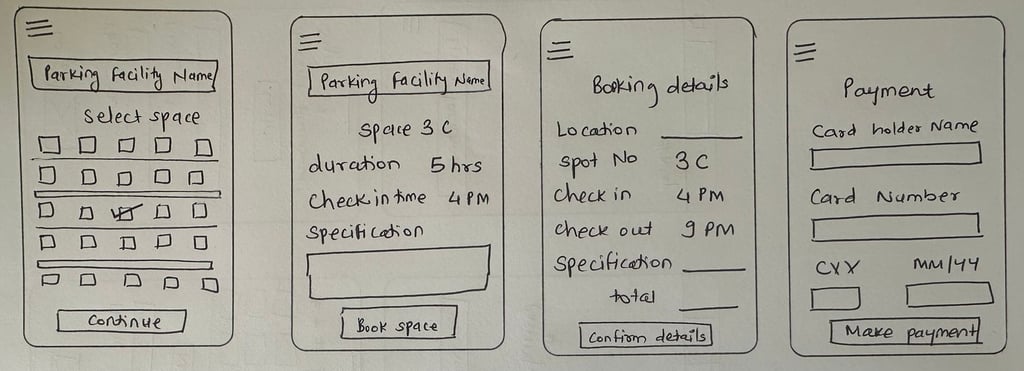 Parking Facility Name
Select space
Continue
Parking Facility Name
Space 3 C
duration 5 hrs
Check in time 4 PM
Specification
Book space
Booking details
Location
Spot No 3 C
Check in 4 PM
Check out 9 PM
Specification
total
Confirm details
Payment
Card holder Name
Card Number
CVV MM/YY
Make payment